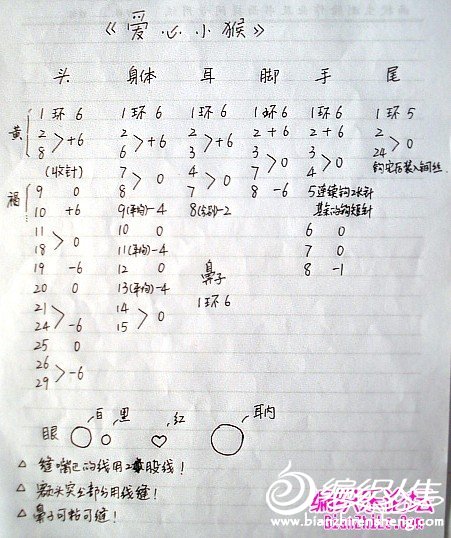 《爱心小猴》
头 身体 耳 脚 手 尾
黄 1 环 6 1 环 6 1 环 6 1 环 6 1 环 6 1 环 5
2 > +6 2 > +6 2 > +6 2 + 6 2 + 6 2 > 0
8 6 3 3 > 0 3 > 0 24
(收针) 7 > 0 4 > 0 7 4 钩完后装入钢丝
褔 9 0 8 7 8 -6 5 连续钩2长针
10 +6 9 (平均) -4 8 (分别) -2 其余的钩短针
11 > 0 10 0 6 0
18 11 (平均) -4 7 0
19 -6 12 0 鼻子 8 -1
20 0 13 (平均) -4 1 环 6
21 > -6 14 > 0
24 15
25 0
26 > -6
29
眼 白 黑 红 耳内
△ 缝嘴巴的线用2股线!
△ 额头突出部分用线缝!
△ 鼻子可粘可缝!
编织人生
www.bianzhirensheng.com